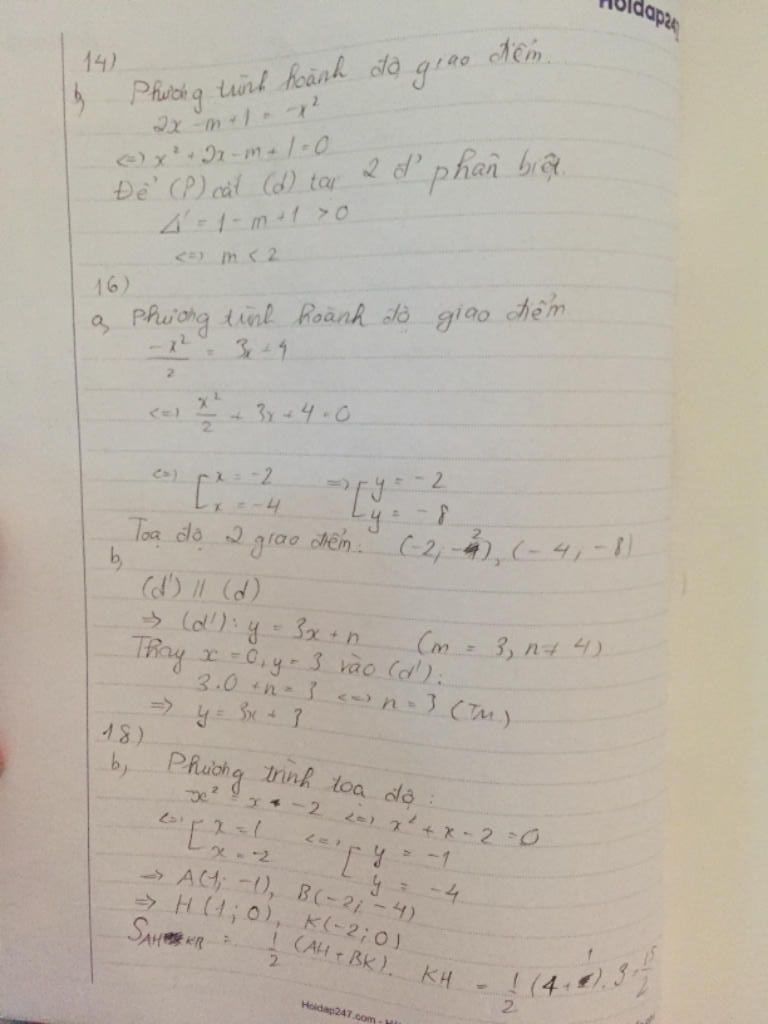 Hoidap247
14)
b, Phương trình hoành độ giao điểm.
2x - m + 1 = -x²
<=> x² + 2x - m + 1 = 0
Để (P) cắt (d) tại 2 đ' phân biệt.
Δ' = 1 - m + 1 > 0
<=> m < 2
16)
a, Phương trình hoành độ giao điểm
-x²/2 = 3x + 4
<=> x²/2 + 3x + 4 = 0
<=> [ x = -2 => [ y = -2
x = -4 y = -8
Toạ độ 2 giao điểm: (-2, -2), (-4, -8)
b,
(d') // (d)
=> (d'): y = 3x + n (m = 3, n ≠ 4)
Thay x = 0, y = 3 vào (d'):
3.0 + n = 3 <=> n = 3 (TM)
=> y = 3x + 3
18)
b, Phương trình toạ độ:
-x² = x - 2 <=> x² + x - 2 = 0
<=> [ x = 1 <=> [ y = -1
x = -2 y = -4
=> A(1; -1), B(-2; -4)
=> H(1; 0), K(-2; 0)
S AHKB = 1/2 (AH + BK). KH = 1/2 (4 + 1). 3 = 15/2
Hoidap247.com